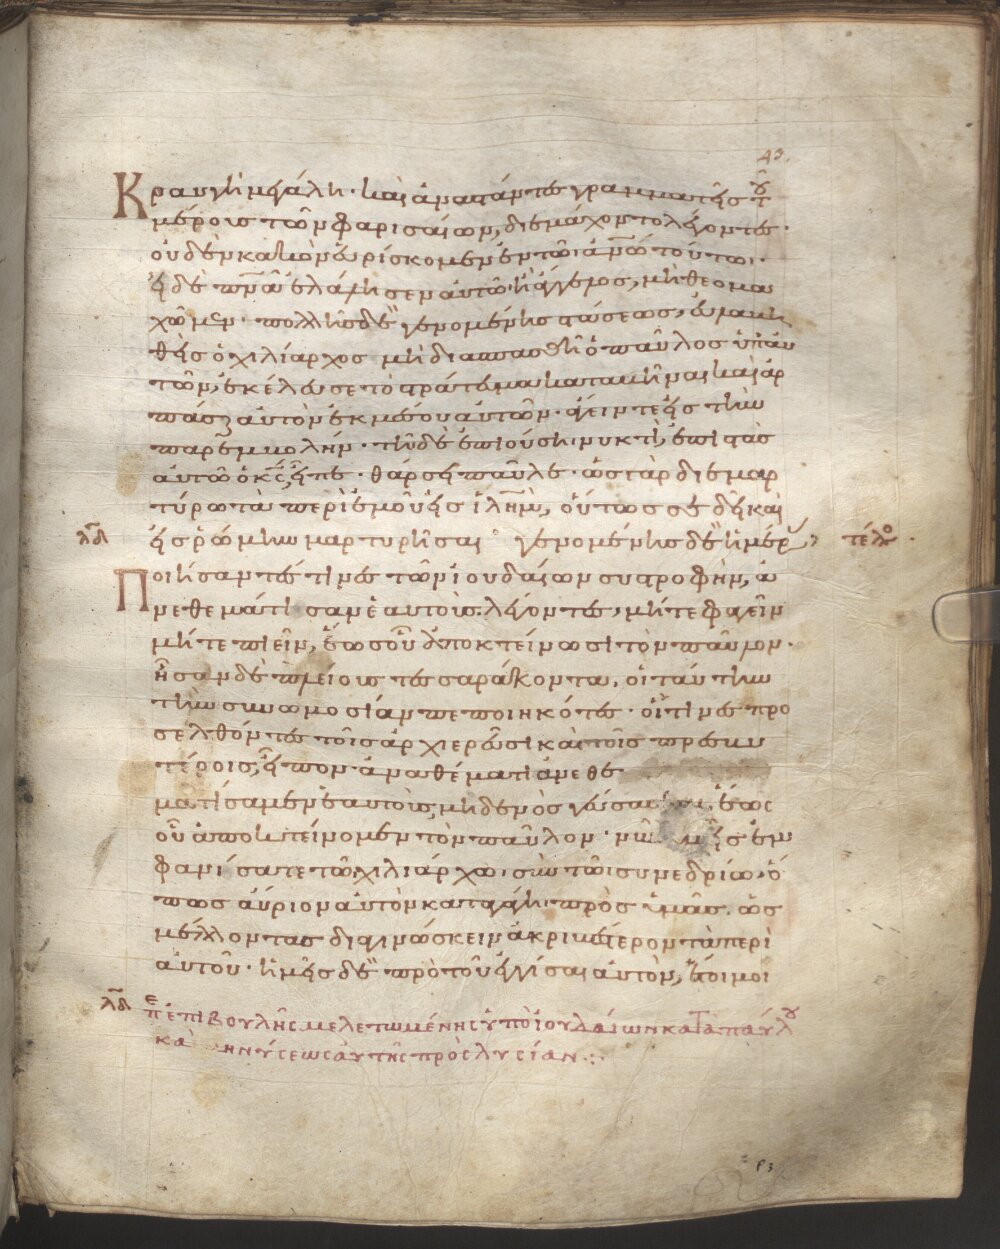 43
Κραυγὴ μεγάλη· καὶ ἀναστάντες γραμματεῖς τοῦ
μέρους τῶν φαρισαίων, διεμάχοντο λέγοντες·
οὐδὲν κακὸν εὑρίσκομεν ἐν τῶ ἀνῶ τούτω·
εἰ δὲ πνᾶ ἐλάλησεν αὐτῶ ἢ ἄγγελος, μὴ θεομα
χῶμεν· πολλῆς δὲ γενομένης στάσεως, εὐλαβη
θεὶς ὁ χιλίαρχος μὴ διασπασθῆ ὁ παῦλος ὑπ' αὐ
τῶν, ἐκέλευσε τὸ στράτευμα καταβῆναι καὶ ἁρ
πάσαι αὐτὸν ἐκ μέσου αὐτῶν· ἄγειν τε εἰς τὴν
παρεμβολήν· τῆ δὲ ἐπιούση νυκτὶ, ἐπιστὰς
αὐτῶ ὁ κς, εἶπε· θάρσει παῦλε· ὡς γὰρ διεμαρ
τύρω τὰ περὶ ἐμοῦ εἰς ἱλῆμ, οὕτως σὲ δεῖ καὶ
εἰς ῥώμην μαρτυρῆσαι γενομένης δὲ ἡμέρ τέλο
Ποιήσαντές τινες τῶν ἰουδαίων συστροφὴν, ἀ
νεθεμάτισαν ἑαυτοὺς λέγοντες, μήτε φαγεῖν
μήτε πιεῖν, ἕως οὗ ἀποκτείνωσι τὸν παῦλον·
ἦσαν δὲ πλείους τεσσαράκοντα, οἱ ταύτην
τὴν συνωμοσίαν πεποιηκότες· οἵτινες προ
σελθόντες τοῖς ἀρχιερεῦσι καὶ τοῖς πρεσβυ
τέροις, εἶπον ἀναθέματι ἀνεθε
ματίσαμεν ἑαυτοὺς, μηδενὸς γεύσασθαι, ἕως
οὗ ἀποκτείνομεν τὸν παῦλον· νῦν ὑμεῖς ἐμ
φανίσατε τῶ χιλιάρχω σὺν τῶ συνεδρίω, ὅ
πως αὔριον αὐτὸν καταγάγη πρὸς ὑμᾶς, ὡς
μέλλοντας διαγινώσκειν ἀκριβέστερον τὰ περὶ
αὐτοῦ· ἡμεῖς δὲ πρὸ τοῦ ἐγγίσαι αὐτὸν, ἕτοιμοι
πε ἐπιβουλῆς μελετωμένης ὑπὸ ἰουδαίων κατὰ παύλου
κὰ μηνύσεως αὐτῆς πρὸς λυσίαν